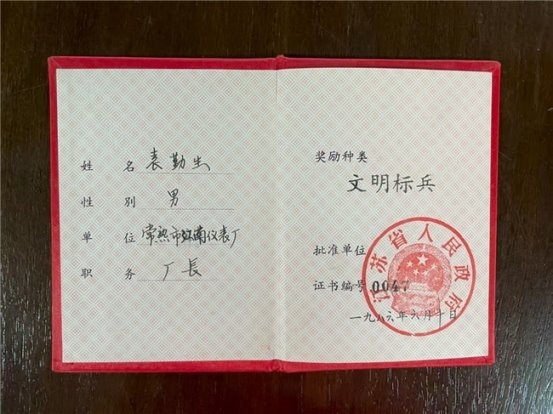 姓 名 袁勤生
性 别 男
单 位 常熟市江南仪表厂
职 务 厂长
奖励种类
文明标兵
批准单位
江苏省人民政府
证书编号 0047
一九八六年六月十日